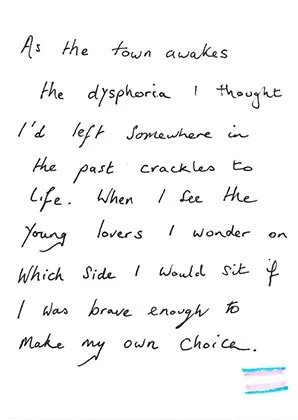 As the town awakes
the dysphoria I thought
I'd left somewhere in
the past crackles to
life. When I see the
young lovers I wonder on
which side I would sit if
I was brave enough to
make my own choice.